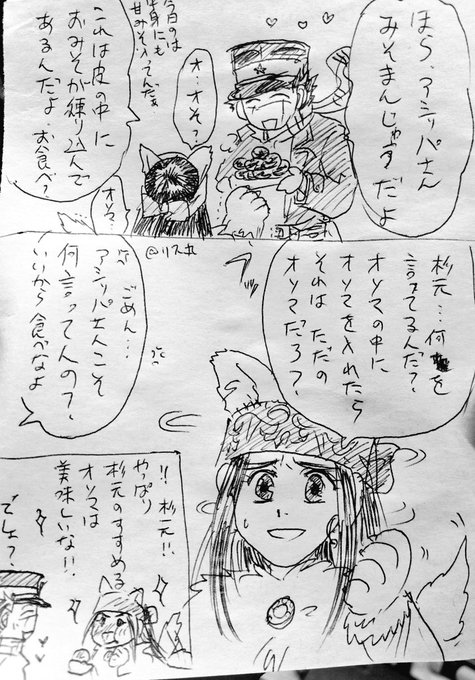 ほら、アシリパさん
みそまんじゅうだよ
今日のは
中身にも
甘みそ入ってんだぜ
オ…オソ？
これは皮の中に
おみそが練り込んで
あるんだよ…お食べ？
オソ？
杉元…何を
言ってるんだ？
オソマの中に
オソマを入れたら
それは ただの
オソマだろ？
ごめん…
アシリパさんこそ
何言ってんの？
いいから食べなよ
!! 杉元!!
やっぱり
杉元のすすめる
オソマは
美味しいな!!
でしょ？